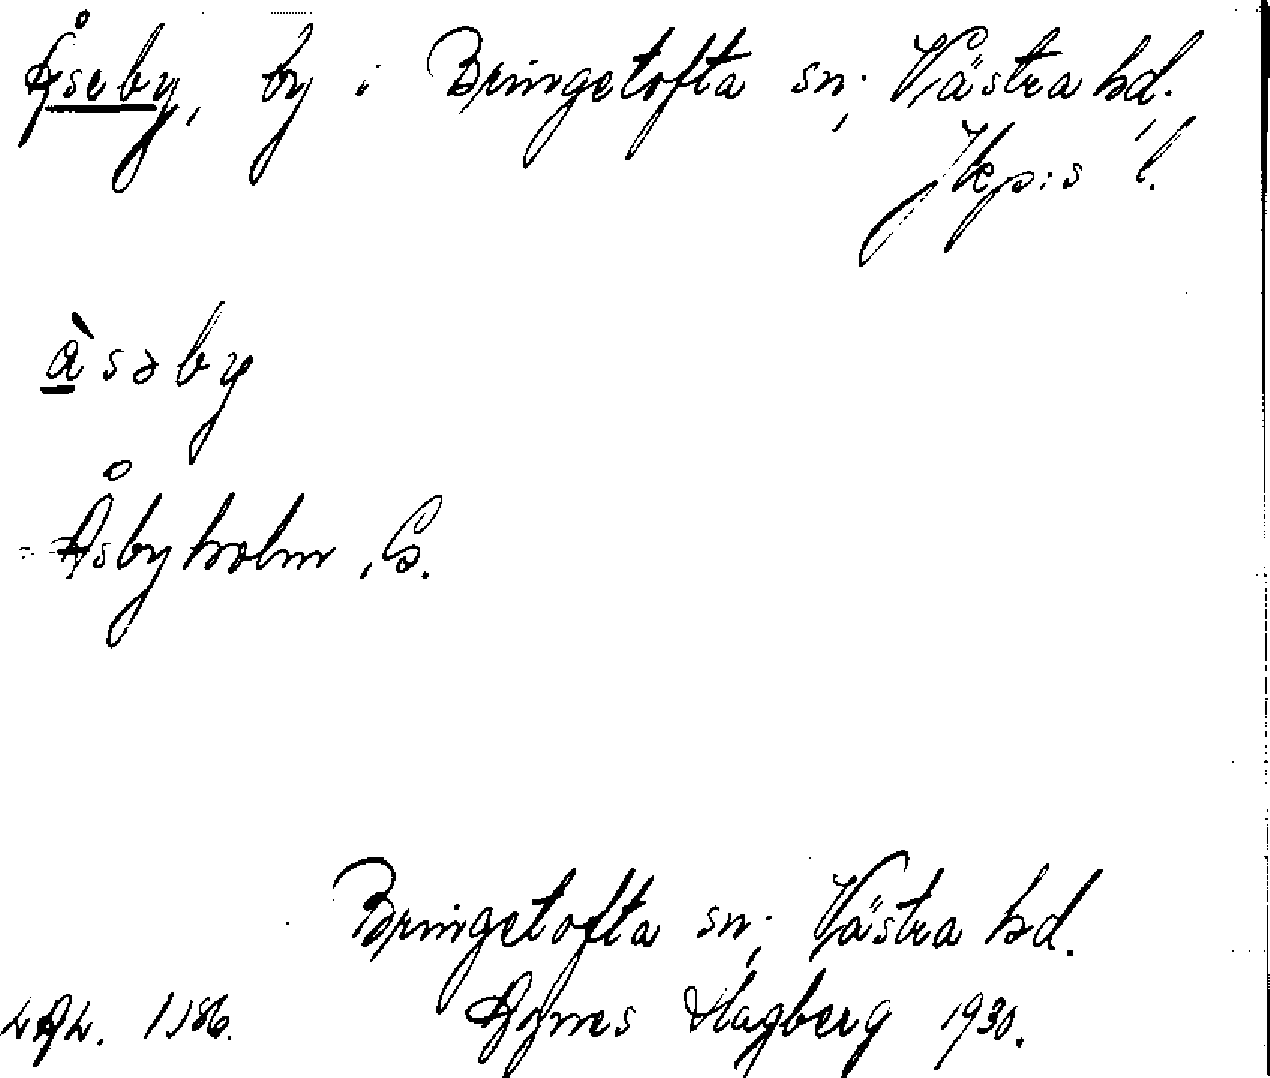 Åseby, by i Bringetofta sn, Västra hd,
Jkp:s l.
à̲səby
= Åsbyholm, G.
Bringetofta sn, Västra hd.
Agnes Hagberg 1930.